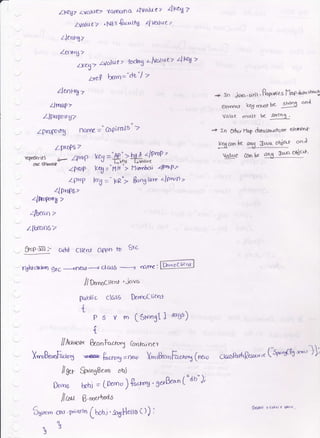 <key> <value> ramana </value> </key>
<value> .NET faculty </value>
</entry>
<entry>
<key> <value> today </value> </key>
<ref bean="dt"/>
</entry>
</map>
</property>
<property name="capitals">
<props>
<prop key="AP"> hyd </prop>
<prop key="MH"> Mumbai </prop>
<prop key="KR"> Banglore </prop>
</props>
</property>
</bean>
</beans>
→ In java.util.Properties Map datastructure
element key must be string and
value must be string.
→ In Other Map datastructure element
key can be any Java object and
value can be any Java object.
represents one element
key
value
Step-5:- add client appn to src
right click on src → new → class → name: DemoClient
// DemoClient.java
public class DemoClient
{
p s v m (String[] args)
{
// Activate BeanFactory Container
XmlBeanFactory factory = new XmlBeanFactory(new ClassPathResource("SpringCfg.xml"));
// get SpringBean obj
Demo bobj = (Demo) factory.getBean("db");
// call B.methods
System.out.println(bobj.sayHello());
}
}